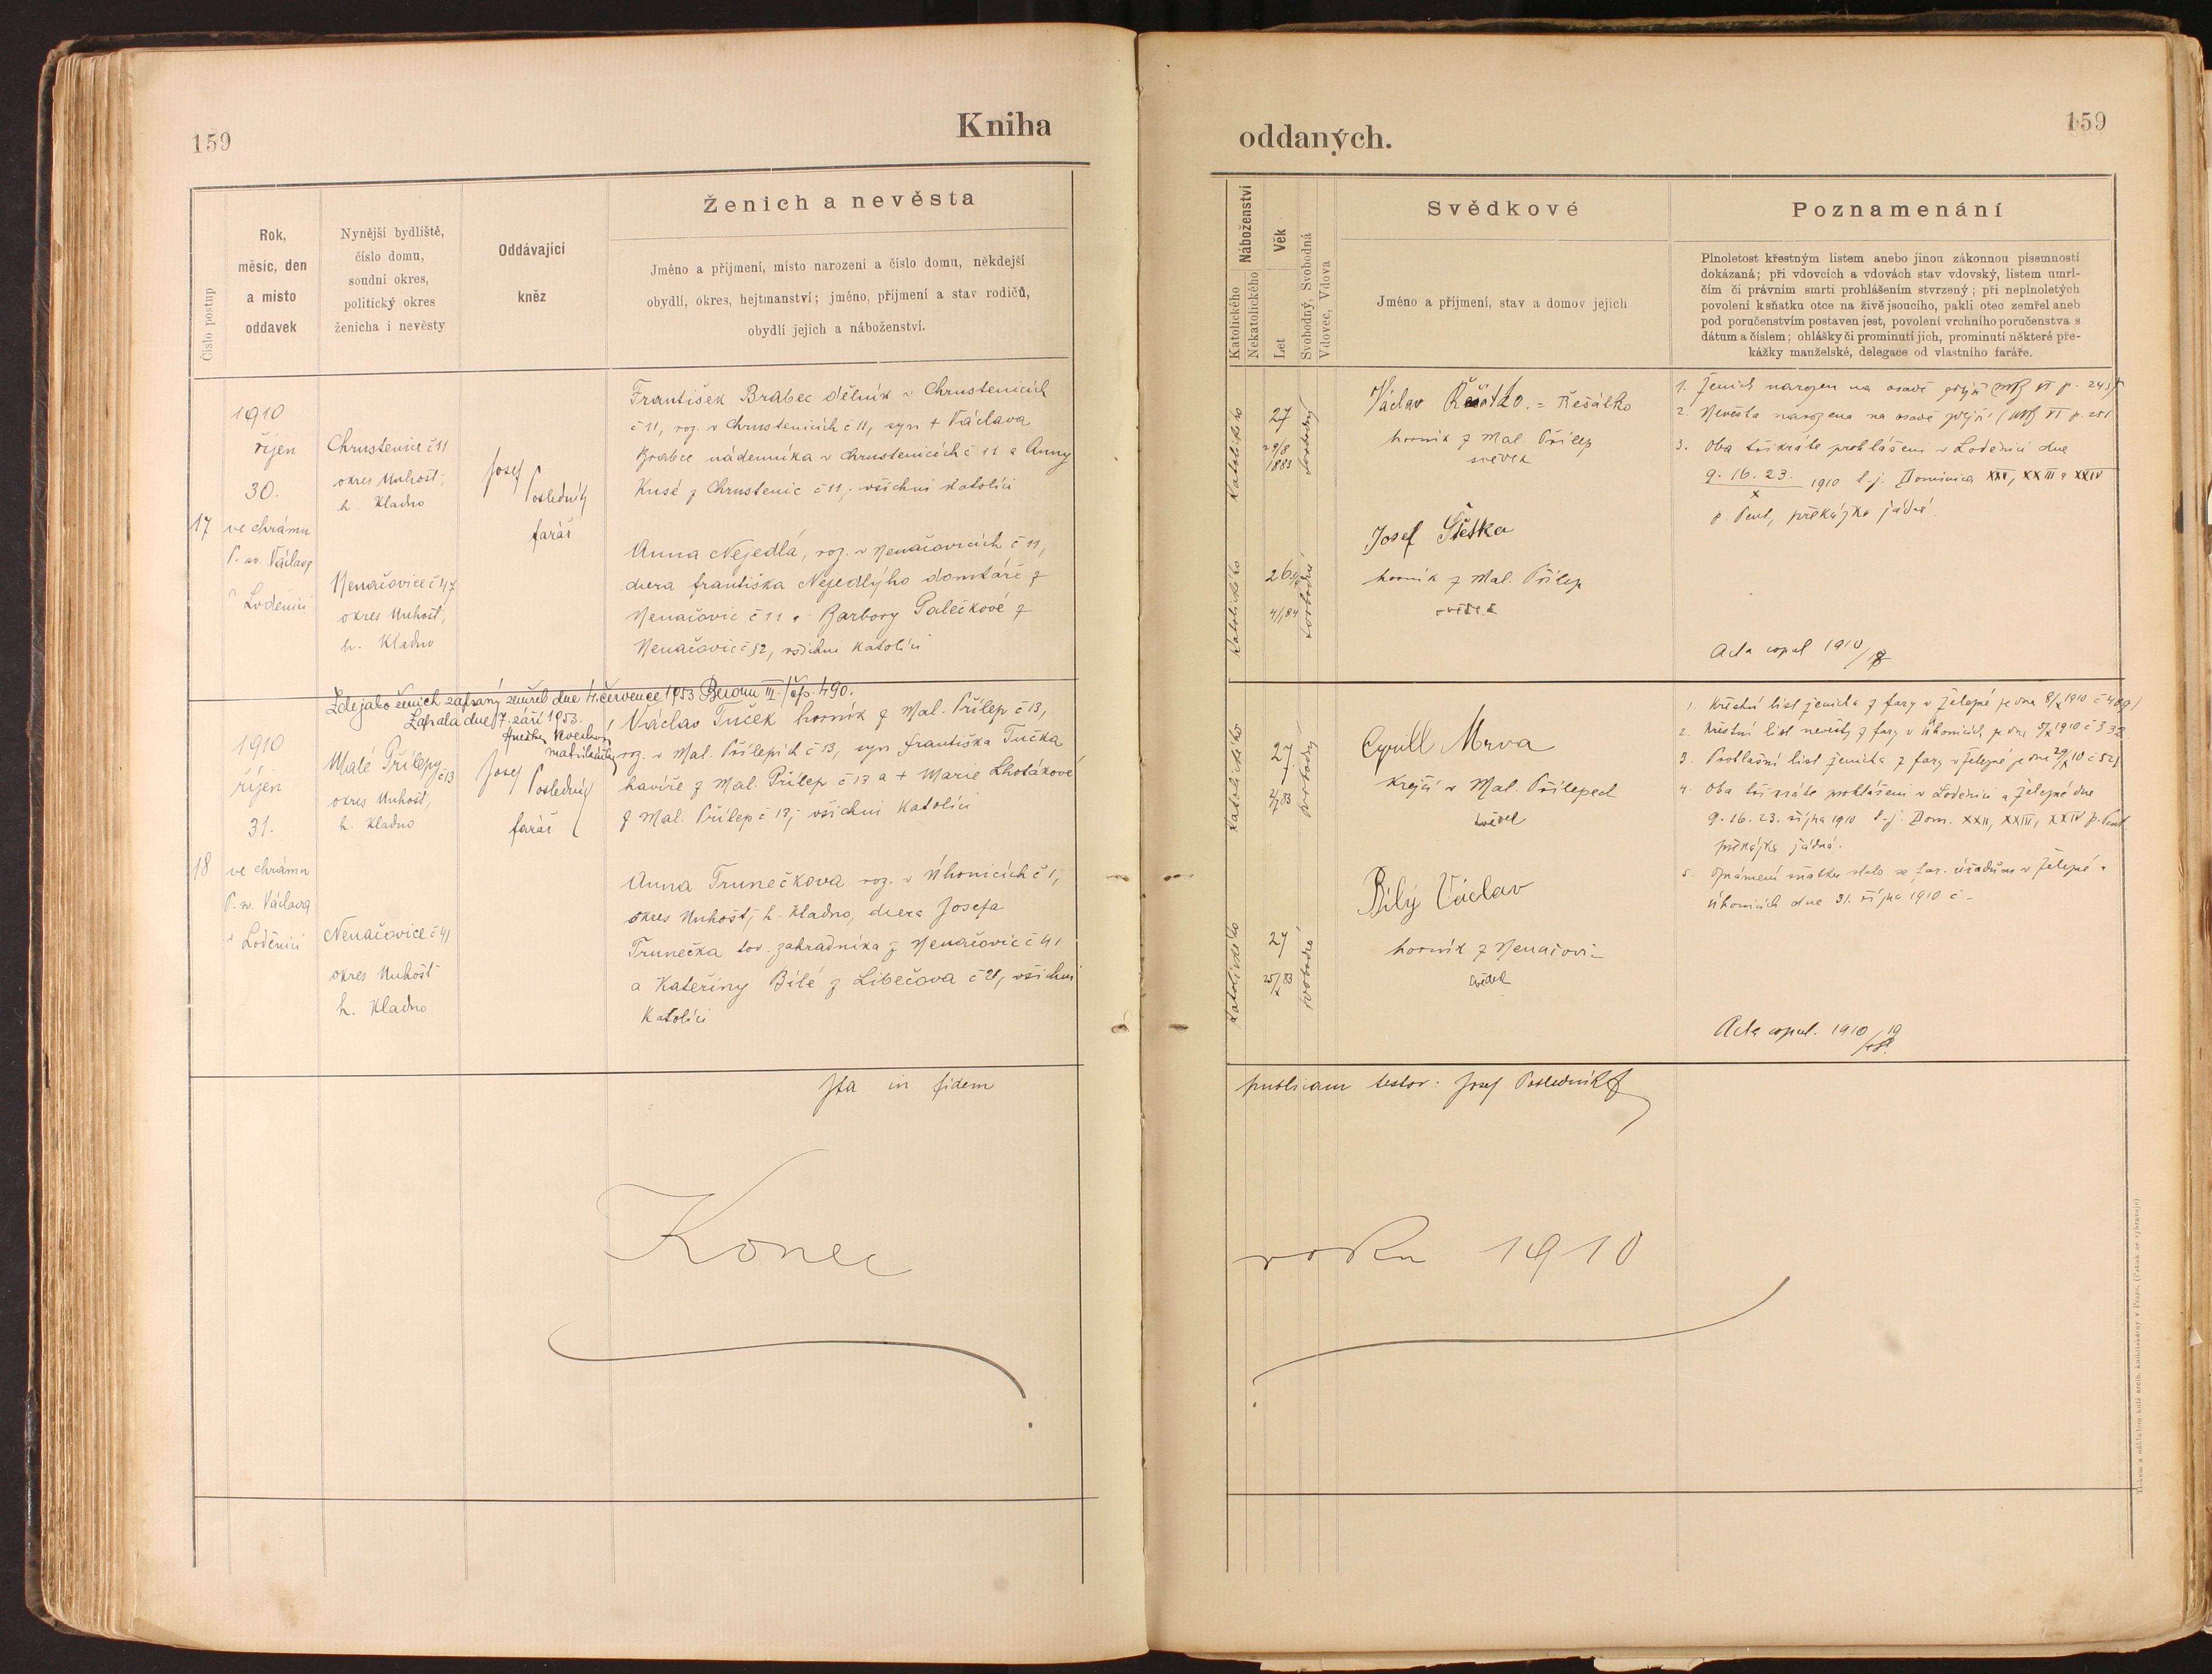 159
Kniha
Číslo postup
Rok,
měsíc, den
a místo
oddavek
Nynější bydliště,
číslo domu,
soudní okres,
politický okres
ženicha i nevěsty
Oddávající
kněz
Ženich a nevěsta
Jméno a příjmení, místo narození a číslo domu, někdejší
obydlí, okres, hejtmanství; jméno, příjmení a stav rodičů,
obydlí jejich a náboženství.
17
1910
říjen
30.
ve chrámu
P. sv. Václava
v Loděnici
Chrustenice č 11
okres Unhošť,
h. Kladno
Nenačovice č 47
okres Unhošť,
h. Kladno
Josef
Posledník
farář
František Brabec dělník v Chrustenicích
č 11, roz. v Chrustenicích č 11, syn + Václava
Brabce nádenníka v Chrustenicích č 11 a Anny
Kusé z Chrustenic č 11; všichni katolíci
Anna Nejedlá, roz. v Nenačovicích č 11,
dcera Františka Nejedlýho domkáře z
Nenačovic č 11 a Barbory Palečkové z
Nenačovic č 52, všichni katolíci
Zde jako ženich zapsaný zemřel dne 4. července 1953 Beroun III. / čp. 490.
Zapsala dne 17. září 1953.
matrikářka
18
1910
říjen
31.
ve chrámu
P. sv. Václava
v Loděnici
Malé Přílepy
č 13
okres Unhošť,
h. Kladno
Nenačovice č 41
okres Unhošť
h. Kladno
Josef
Posledník
farář
Václav Tuček horník z Mal. Přílep č 13,
roz. v Mal. Přílepích č 13, syn Františka Tučka
havíře z Mal. Přílep č 13 a + Marie Lhotákové
z Mal. Přílep č 13; všichni katolíci
Anna Trunečkova roz. v Úhonicích č 1,
okres Unhošť, h. Kladno, dcera Josefa
Trunečka tov. zahradníka z Nenačovic č 41
a Kateřiny Bílé z Libečova č 21, všichni
katolíci
Ita in fidem
Konec
oddaných.
159
Náboženství
Katolického
Nekatolického
Věk
Let
Svobodný, Svobodná
Vdovec, Vdova
Svědkové
Jméno a příjmení, stav a domov jejich
Poznamenání
Plnoletost křestným listem anebo jinou zákonnou písemností
dokázaná; při vdovcích a vdovách stav vdovský, listem umrl-
čím či právním smrti prohlášením stvrzený; při neplnoletých
povolení k sňatku otce na živě jsoucího, pakli otec zemřel aneb
pod poručenstvím postaven jest, povolení vrchního poručenstva s
dátum a číslem; ohlášky či prominutí jich, prominutí některé pře-
kážky manželské, delegace od vlastního faráře.
Katolického
27
29/8
1883
svobodný
Václav Řešátko. = Řešátko
horník z Mal. Přílep
svědek
Katolického
26
4/1 84
svobodná
Josef Štětka
horník z Mal. Přílep
svědek
1. Ženich narozen na osadě zdejší
2. Nevěsta narozena na osadě zdejší
3. Oba třikráte prohlášeni v Loděnici dne
9. 16. 23.
X
1910 t. j. Dominica XXII, XXIII a XXIV
p. Pent, překážka žádná.
Acta copul 1910/18
Katolického
27
svobodný
Cyrill Mrva
krejčí v Mal. Přílepech
svědek
Katolického
27
svobodná
Bílý Václav
horník z Nenačovic
svědek
1. Křestní list ženicha z fary v Železné je dne 8/X 1910 č 409)
2. Křestní list nevěsty z fary v Úhonicích je dne 5/X 1910 č 332
3. Prohlašní list ženicha z fary v Železné je dne 29/X 10 č 521
4. Oba třikráte prohlášeni v Loděnici a Železné dne
9. 16. 23. října 1910 t. j. Dom. XXII, XXIII, XXIV p. Pent
překážka žádná.
5. Oznámení sňatku stalo se far. úřadům v Železné a
Úhonicích dne 31. října 1910 č -
Acta copul. 1910/19
publicam testor: Josef Posledník
roku 1910